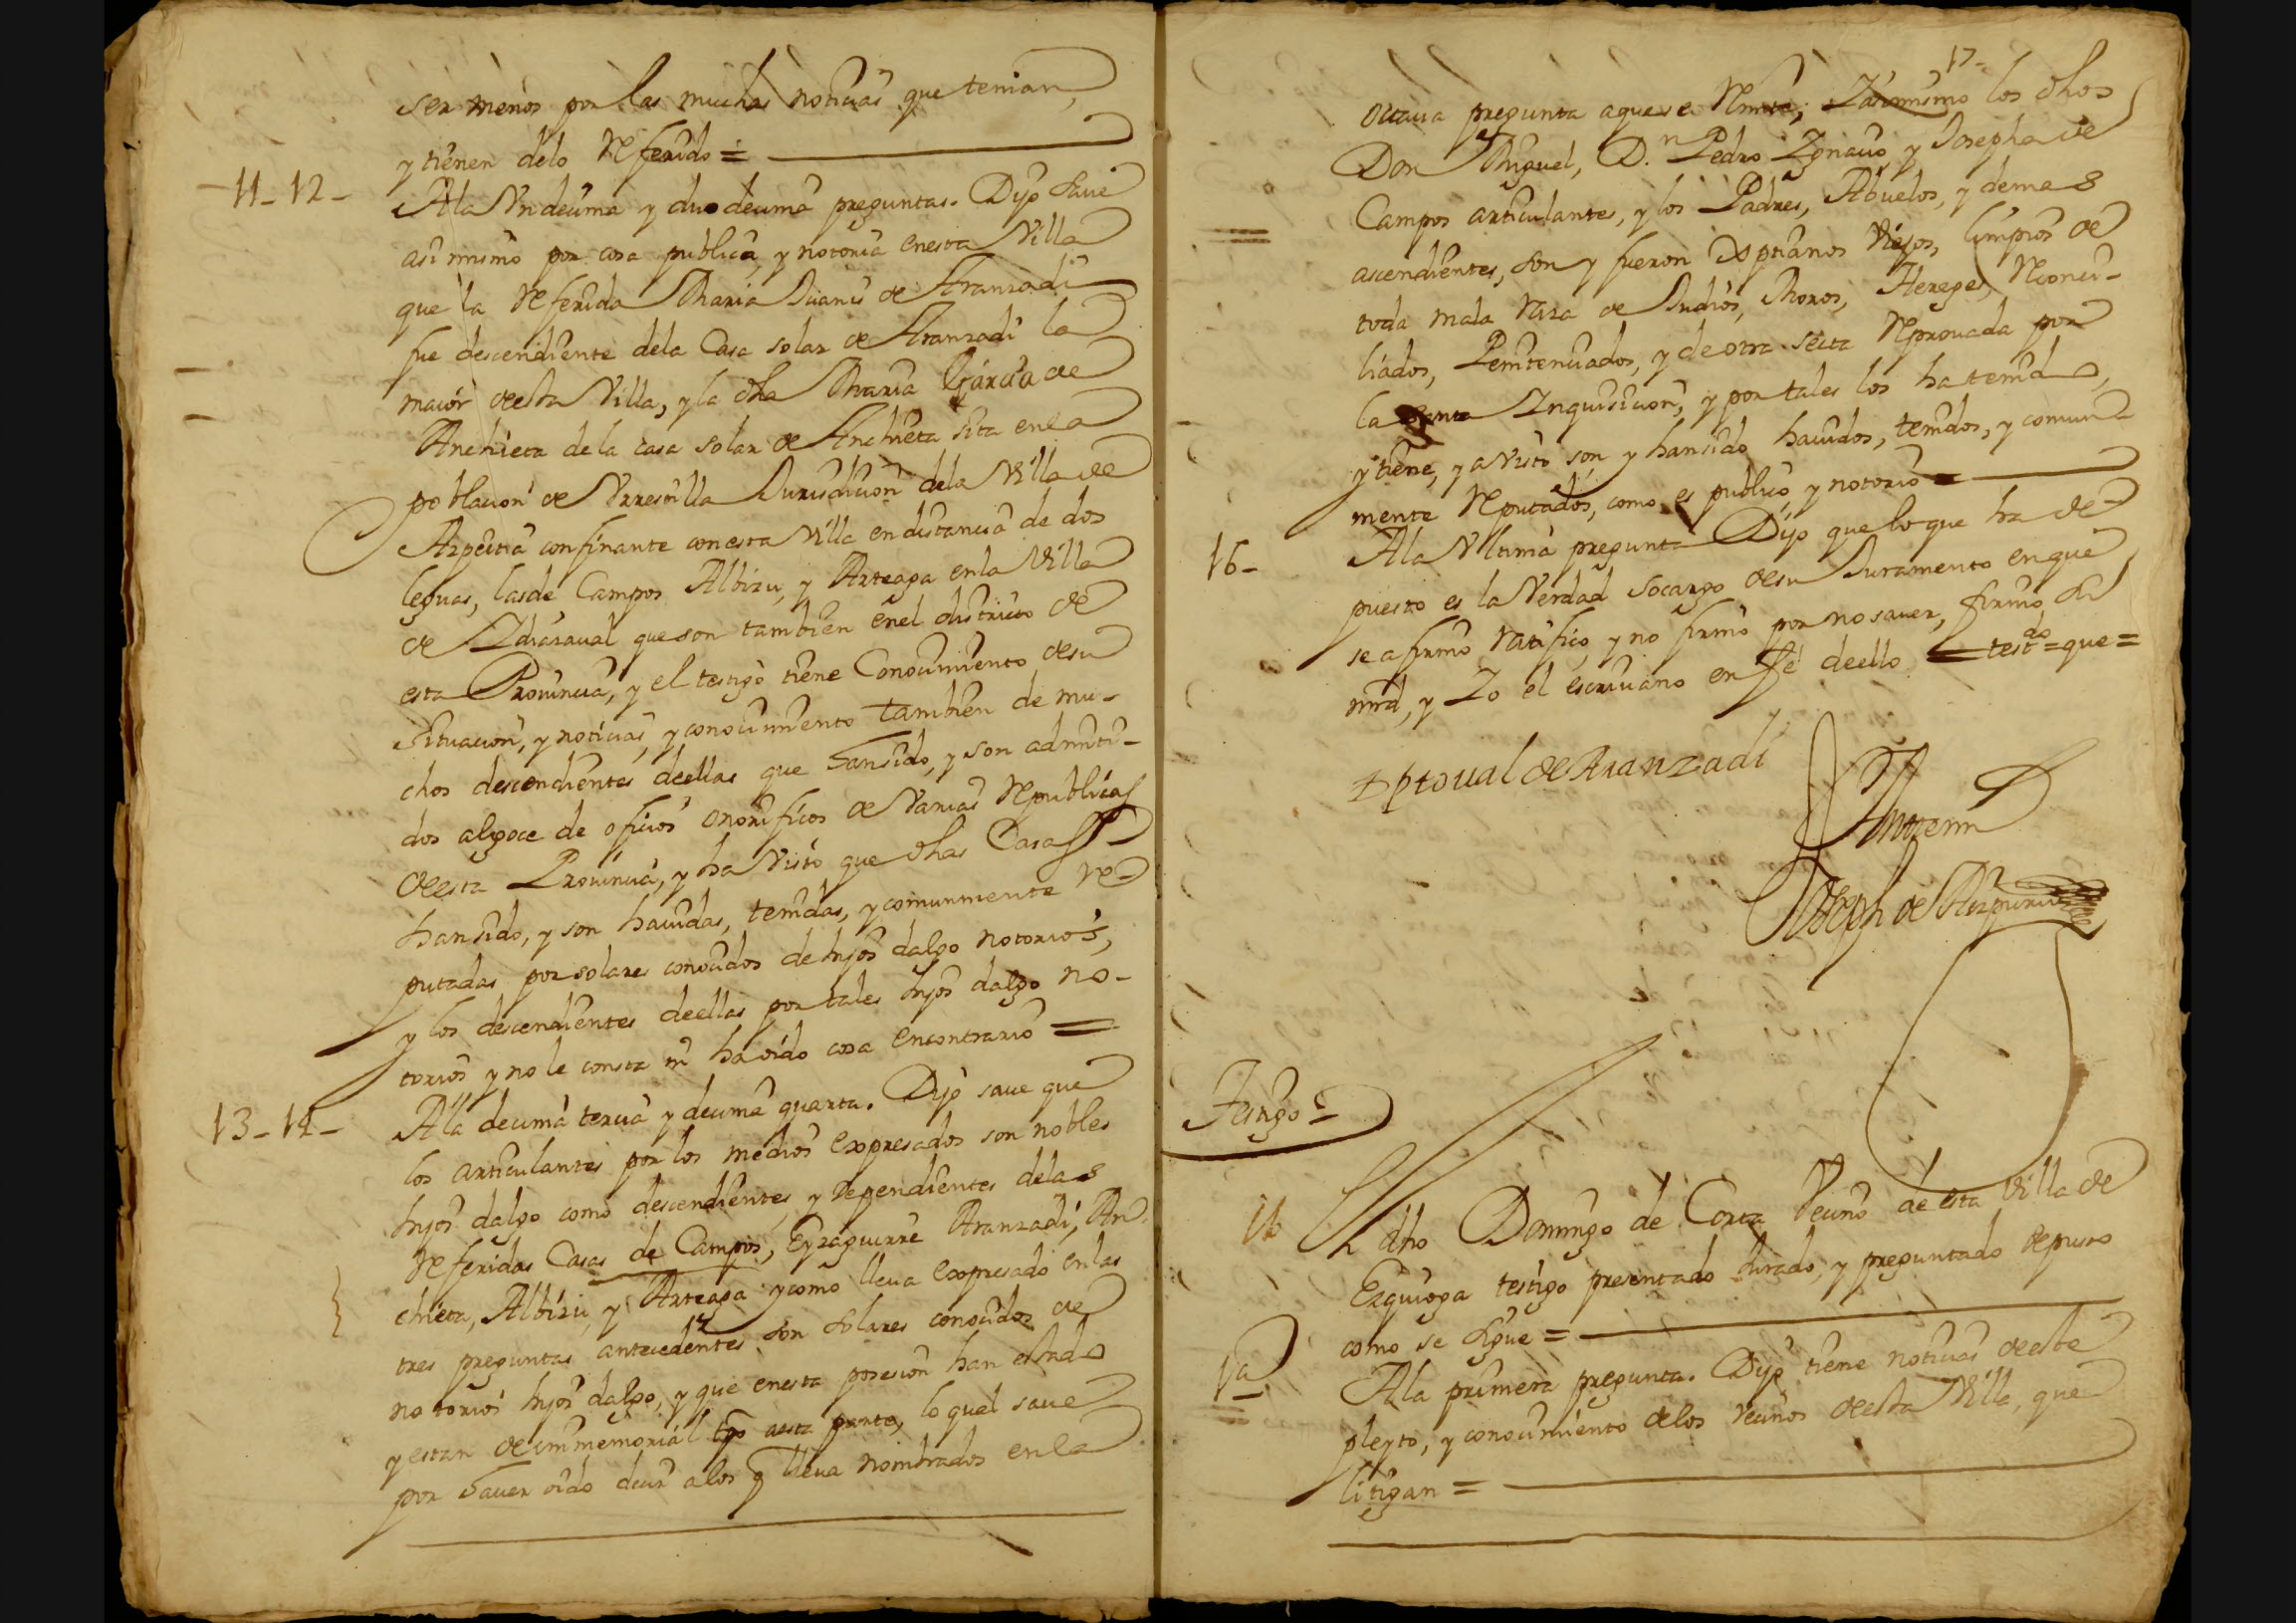 ser menos por las muchas noticias que tenian,
y tienen delo Referido =
11-12-
Ala Undecima y duodecima preguntas. Dijo save
asi mismo por cosa publica, y notoria enesta Villa
que la Referida Maria Juanis de Aranzadi
fue descendiente dela Casa solar de Aranzadi la
maior desta Villa, y la dha Maria Garcia de
Anchieta de la casa solar de Anchieta sita enla
poblacion de Urrestilla Jurisdicion dela Villa de
Azpeitia confinante conesta Villa endistancia de dos
leguas, lasde Campos Albizu, y Arteaga enla Villa
de Ydiazaval queson tambien enel districto de
esta Provincia, y el testigo tiene Conocimiento desu
Situacion, y noticias, y conocimiento tambien de mu-
chos descendientes deellas que hansido, y son admiti-
dos algoce de oficios onorificos de Varias Republicas
deesta Provincia, y ha Visto que dhas Casas
hansido, y son havidas, tenidas, y comunmente re-
putadas por solares conocidos de hijos dalgo notorios,
y los descendientes deellas por tales hijos dalgo no-
torios y no le consta ni ha oido cosa encontrario =
13-14-
Ala decima tercia y decima quarta. Dijo save que
los articulantes por los medios expresados son nobles
hijos dalgo como descendientes, y dependientes delas
Referidas Casas de Campos, Eyzaguirre Aranzadi, An-
chieta, Albizu, y Arteaga y como lleva expresado enlas
tres preguntas antecedentes son Solares conocidos de
notorios hijos dalgo, y que enesta posesion han estado
y estan de immemorial tpo aesta parte, lo qual save
por haver oido decir alos q lleva nombrados enla
17-
octava pregunta aquese Remite; Yasimismo los dhos
Don Miguel, D.n Pedro Ygnacio y Josepha de
Campos articulantes, y los Padres, Abuelos, y demas
ascendientes, son y fueron Xptianos Viejos, limpios de
toda mala Raza de Judios, Moros, Hereges, Reconci-
liados, Penitenciados, y de otra secta Reprovada por
la Santa Inquisicion, y por tales los ha tenido,
y tiene, y a Visto son y hansido havidos, tenidos, y comun-
mente Reputados, como es publico y notorio =
16-
Ala Ultima pregunta Dijo que lo que ha de
puesto es la Verdad socargo desu Juramento enque
se afirmo Ratifico, y no firmo por no saver, firmo, su
mrd, y Yo el escrivano en fe deello = testdo = que =
Xptoval de Aranzadi
Antemi
Joseph de Aizpuru
Testigo
El dho Domingo de Corta Vecino de esta Villa de
Ezquioga testigo presentado Jurado, y preguntado depuso
como se sigue =
1a
Ala primera pregunta. Dijo tiene noticias deeste
pleyto, y conocimiento delos Vecinos deesta Villa, que
litigan =